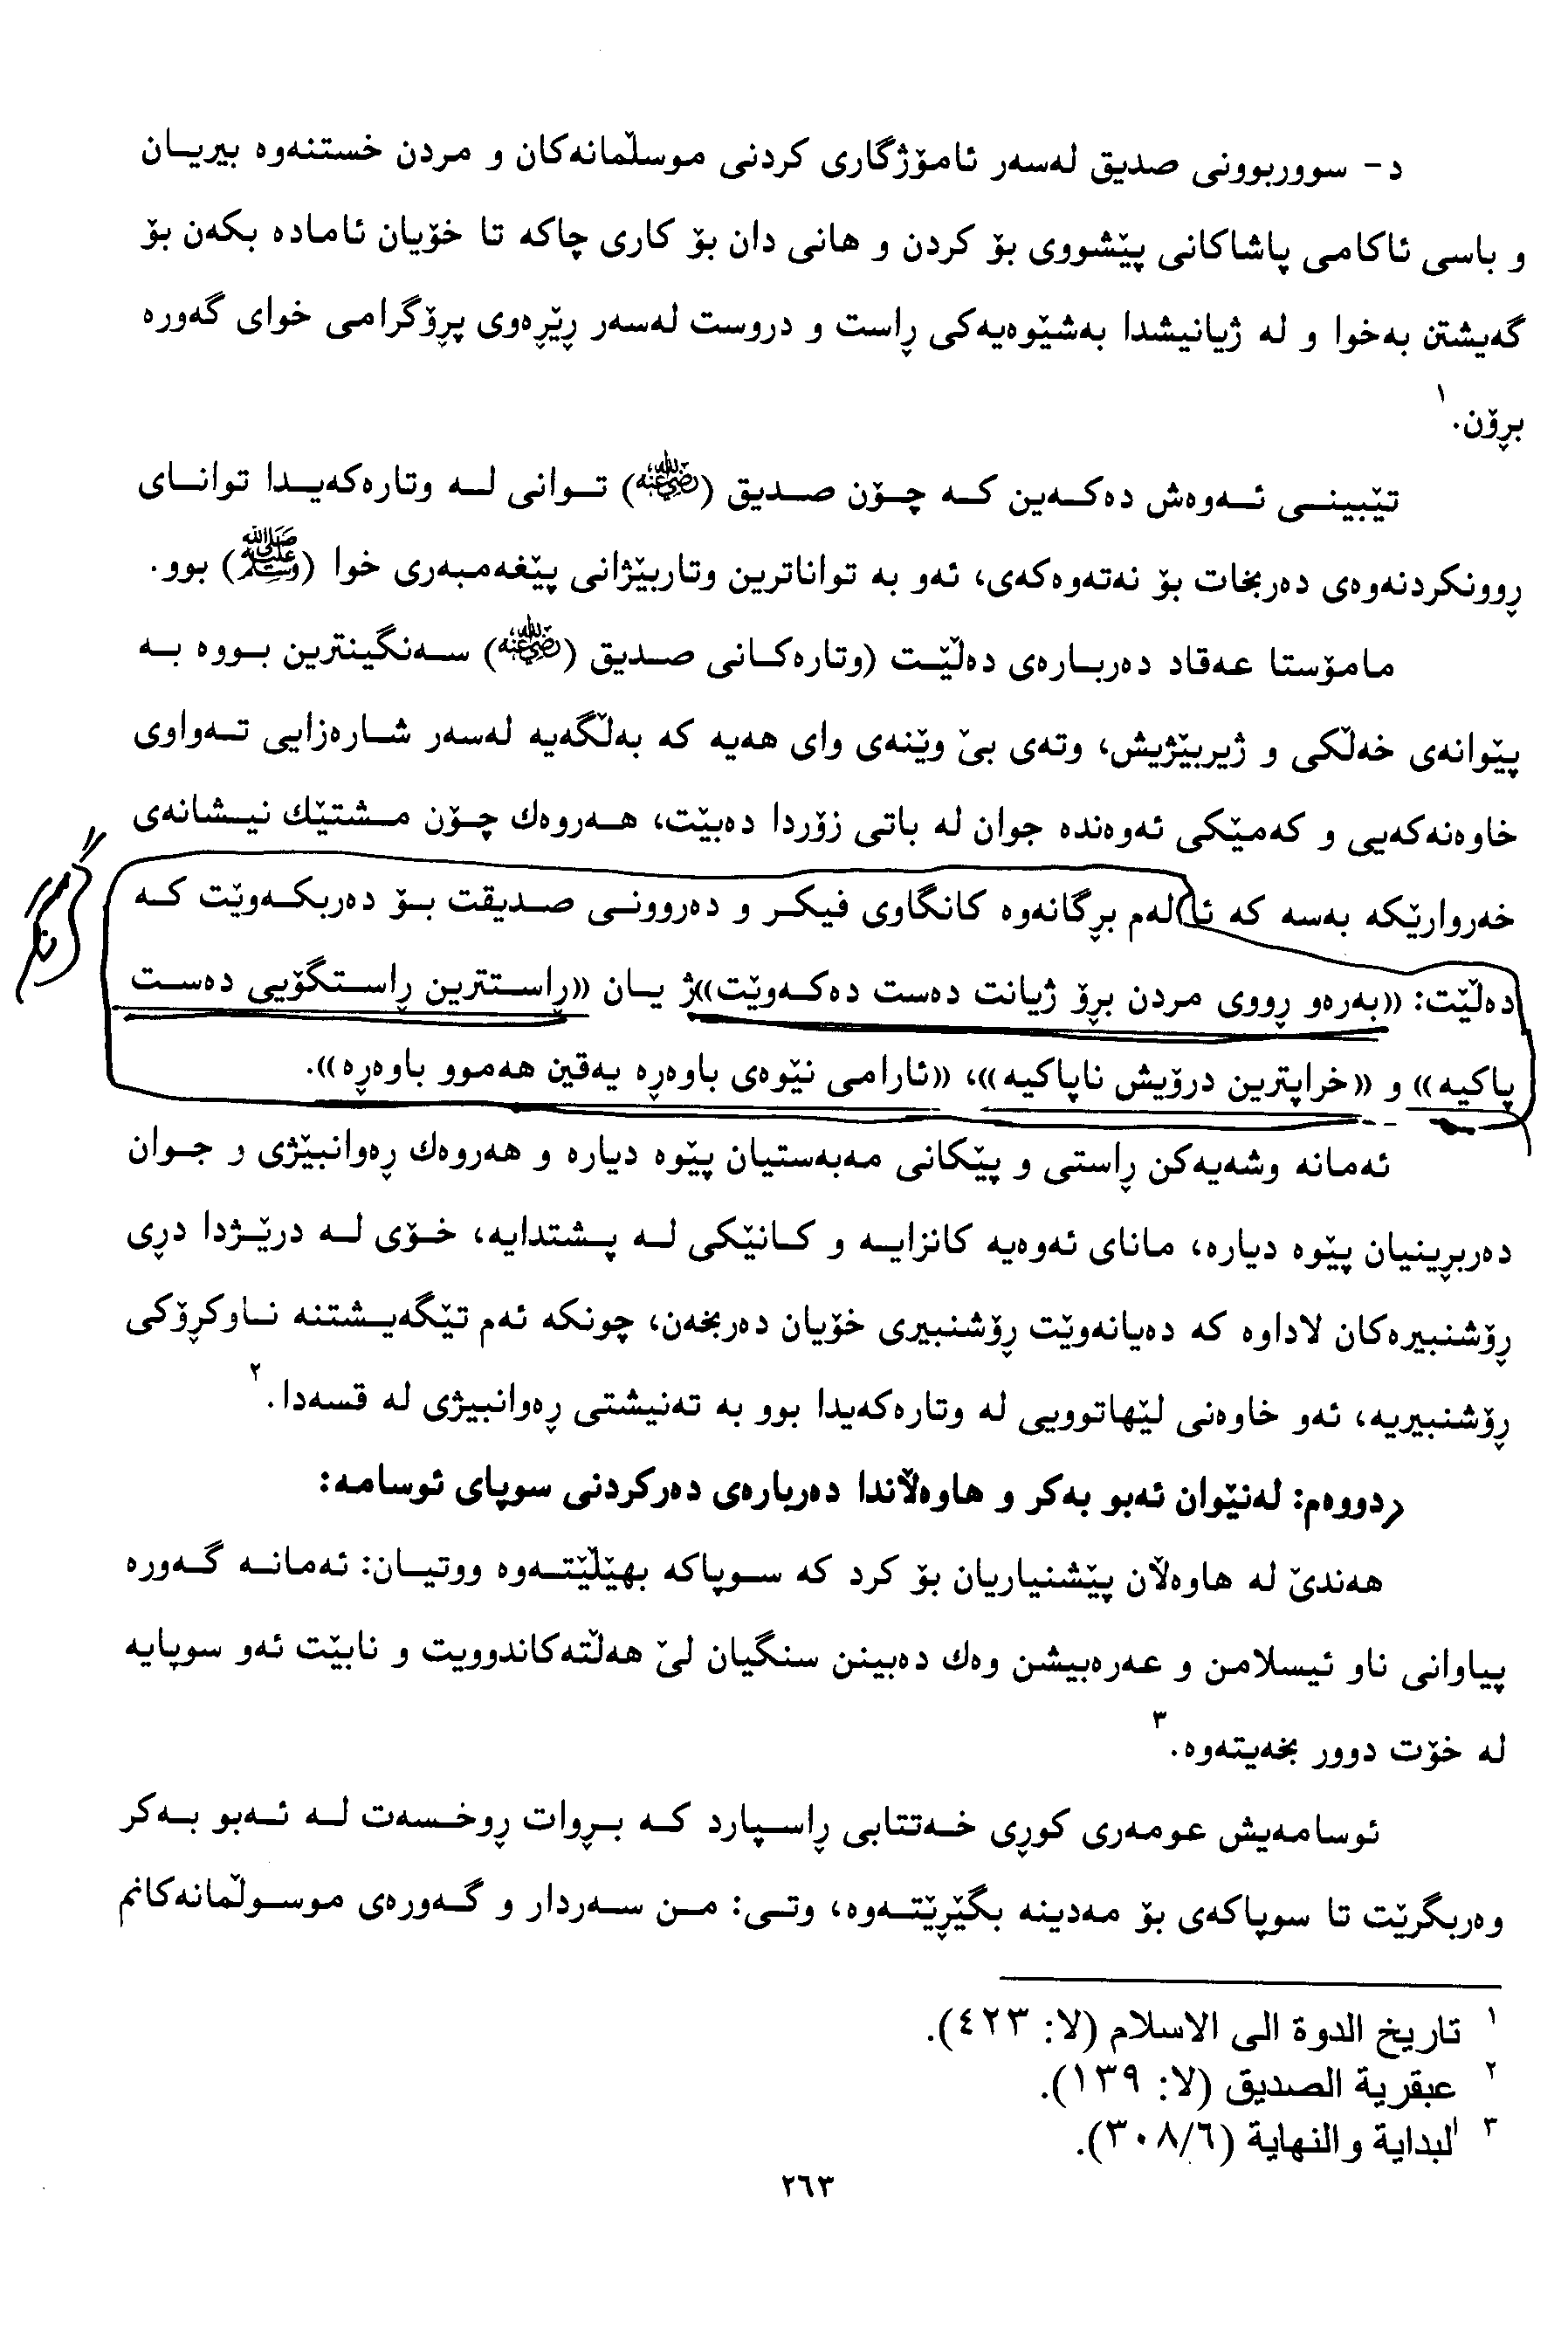 د- سووربوونی صدیق لەسەر ئامۆژگاری کردنی موسڵمانەکان و مردن خستنەوە بیریان
و باسی ئاکامی پاشاکانی پێشووی بۆ کردن و هانی دان بۆ کاری چاکە تا خۆیان ئامادە بکەن بۆ
گەیشتن بەخوا و لە ژیانیشدا بەشێوەیەکی ڕاست و دروست لەسەر ڕێڕەوی پڕۆگرامی خوای گەورە
بڕۆن.١
تێبینی ئەوەش دەکەین کە چۆن صدیق (رضي الله عنه) توانی لە وتارەکەیدا توانای
ڕوونکردنەوەی دەربخات بۆ نەتەوەکەی، ئەو بە تواناترین وتاربێژانی پێغەمبەری خوا (ﷺ) بوو.
مامۆستا عەقاد دەربارەی دەڵێت (وتارەکانی صدیق (رضي الله عنه) سەنگینترین بووە بە
پێوانەی خەڵکی و ژیربێژیش، وتەی بێ وێنەی وای هەیە کە بەڵگەیە لەسەر شارەزایی تەواوی
خاوەنەکەیی و کەمێکی ئەوەندە جوان لە باتی زۆردا دەبێت، هەروەك چۆن مشتێك نیشانەی
خەروارێکە بەسە کە ئا لەم بڕگانەوە کانگاوی فیکر و دەروونی صدیقت بۆ دەربکەوێت کە
دەڵێت: «بەرەو ڕووی مردن بڕۆ ژیانت دەست دەکەوێت»ژ یان «ڕاستترین ڕاستگۆیی دەست
پاکیە» و «خراپترین درۆیش ناپاکیە»، «ئارامی نێوەی باوەڕە یەقین هەموو باوەڕە».
گرنگ
ئەمانە وشەیەکن ڕاستی و پێکانی مەبەستیان پێوە دیارە و هەروەك ڕەوانبێژی و جوان
دەربڕینیان پێوە دیارە، مانای ئەوەیە کانزایە و کانێکی لە پشتدایە، خۆی لە درێژدا دڕی
ڕۆشنبیرەکان لاداوە کە دەیانەوێت ڕۆشنبیری خۆیان دەربخەن، چونکە ئەم تێگەیشتنە ناوکڕۆکی
ڕۆشنبیریە، ئەو خاوەنی لێهاتوویی لە وتارەکەیدا بوو بە تەنیشتی ڕەوانبیژی لە قسەدا.٢
دووەم: لەنێوان ئەبو بەکر و هاوەڵاندا دەربارەی دەرکردنی سوپای ئوسامە:
هەندێ لە هاوەڵان پێشنیاریان بۆ کرد کە سوپاکە بهێڵێتەوە ووتیان: ئەمانە گەورە
پیاوانی ناو ئیسلامن و عەرەبیشن وەك دەبینن سنگیان لێ هەڵتەکاندوویت و نابێت ئەو سوپایە
لە خۆت دوور بخەیتەوە.٣
ئوسامەیش عومەری کوڕی خەتتابی ڕاسپارد کە بڕوات ڕوخسەت لە ئەبو بەکر
وەربگرێت تا سوپاکەی بۆ مەدینە بگێڕێتەوە، وتی: من سەردار و گەورەی موسوڵمانەکانم
١ تاریخ الدوة الی الاسلام (لا: ٤٢٣).
٢ عبقریة الصدیق (لا: ١٣٩).
٣ البدایة والنهایة (٣٠٨/٦).
٢٦٣